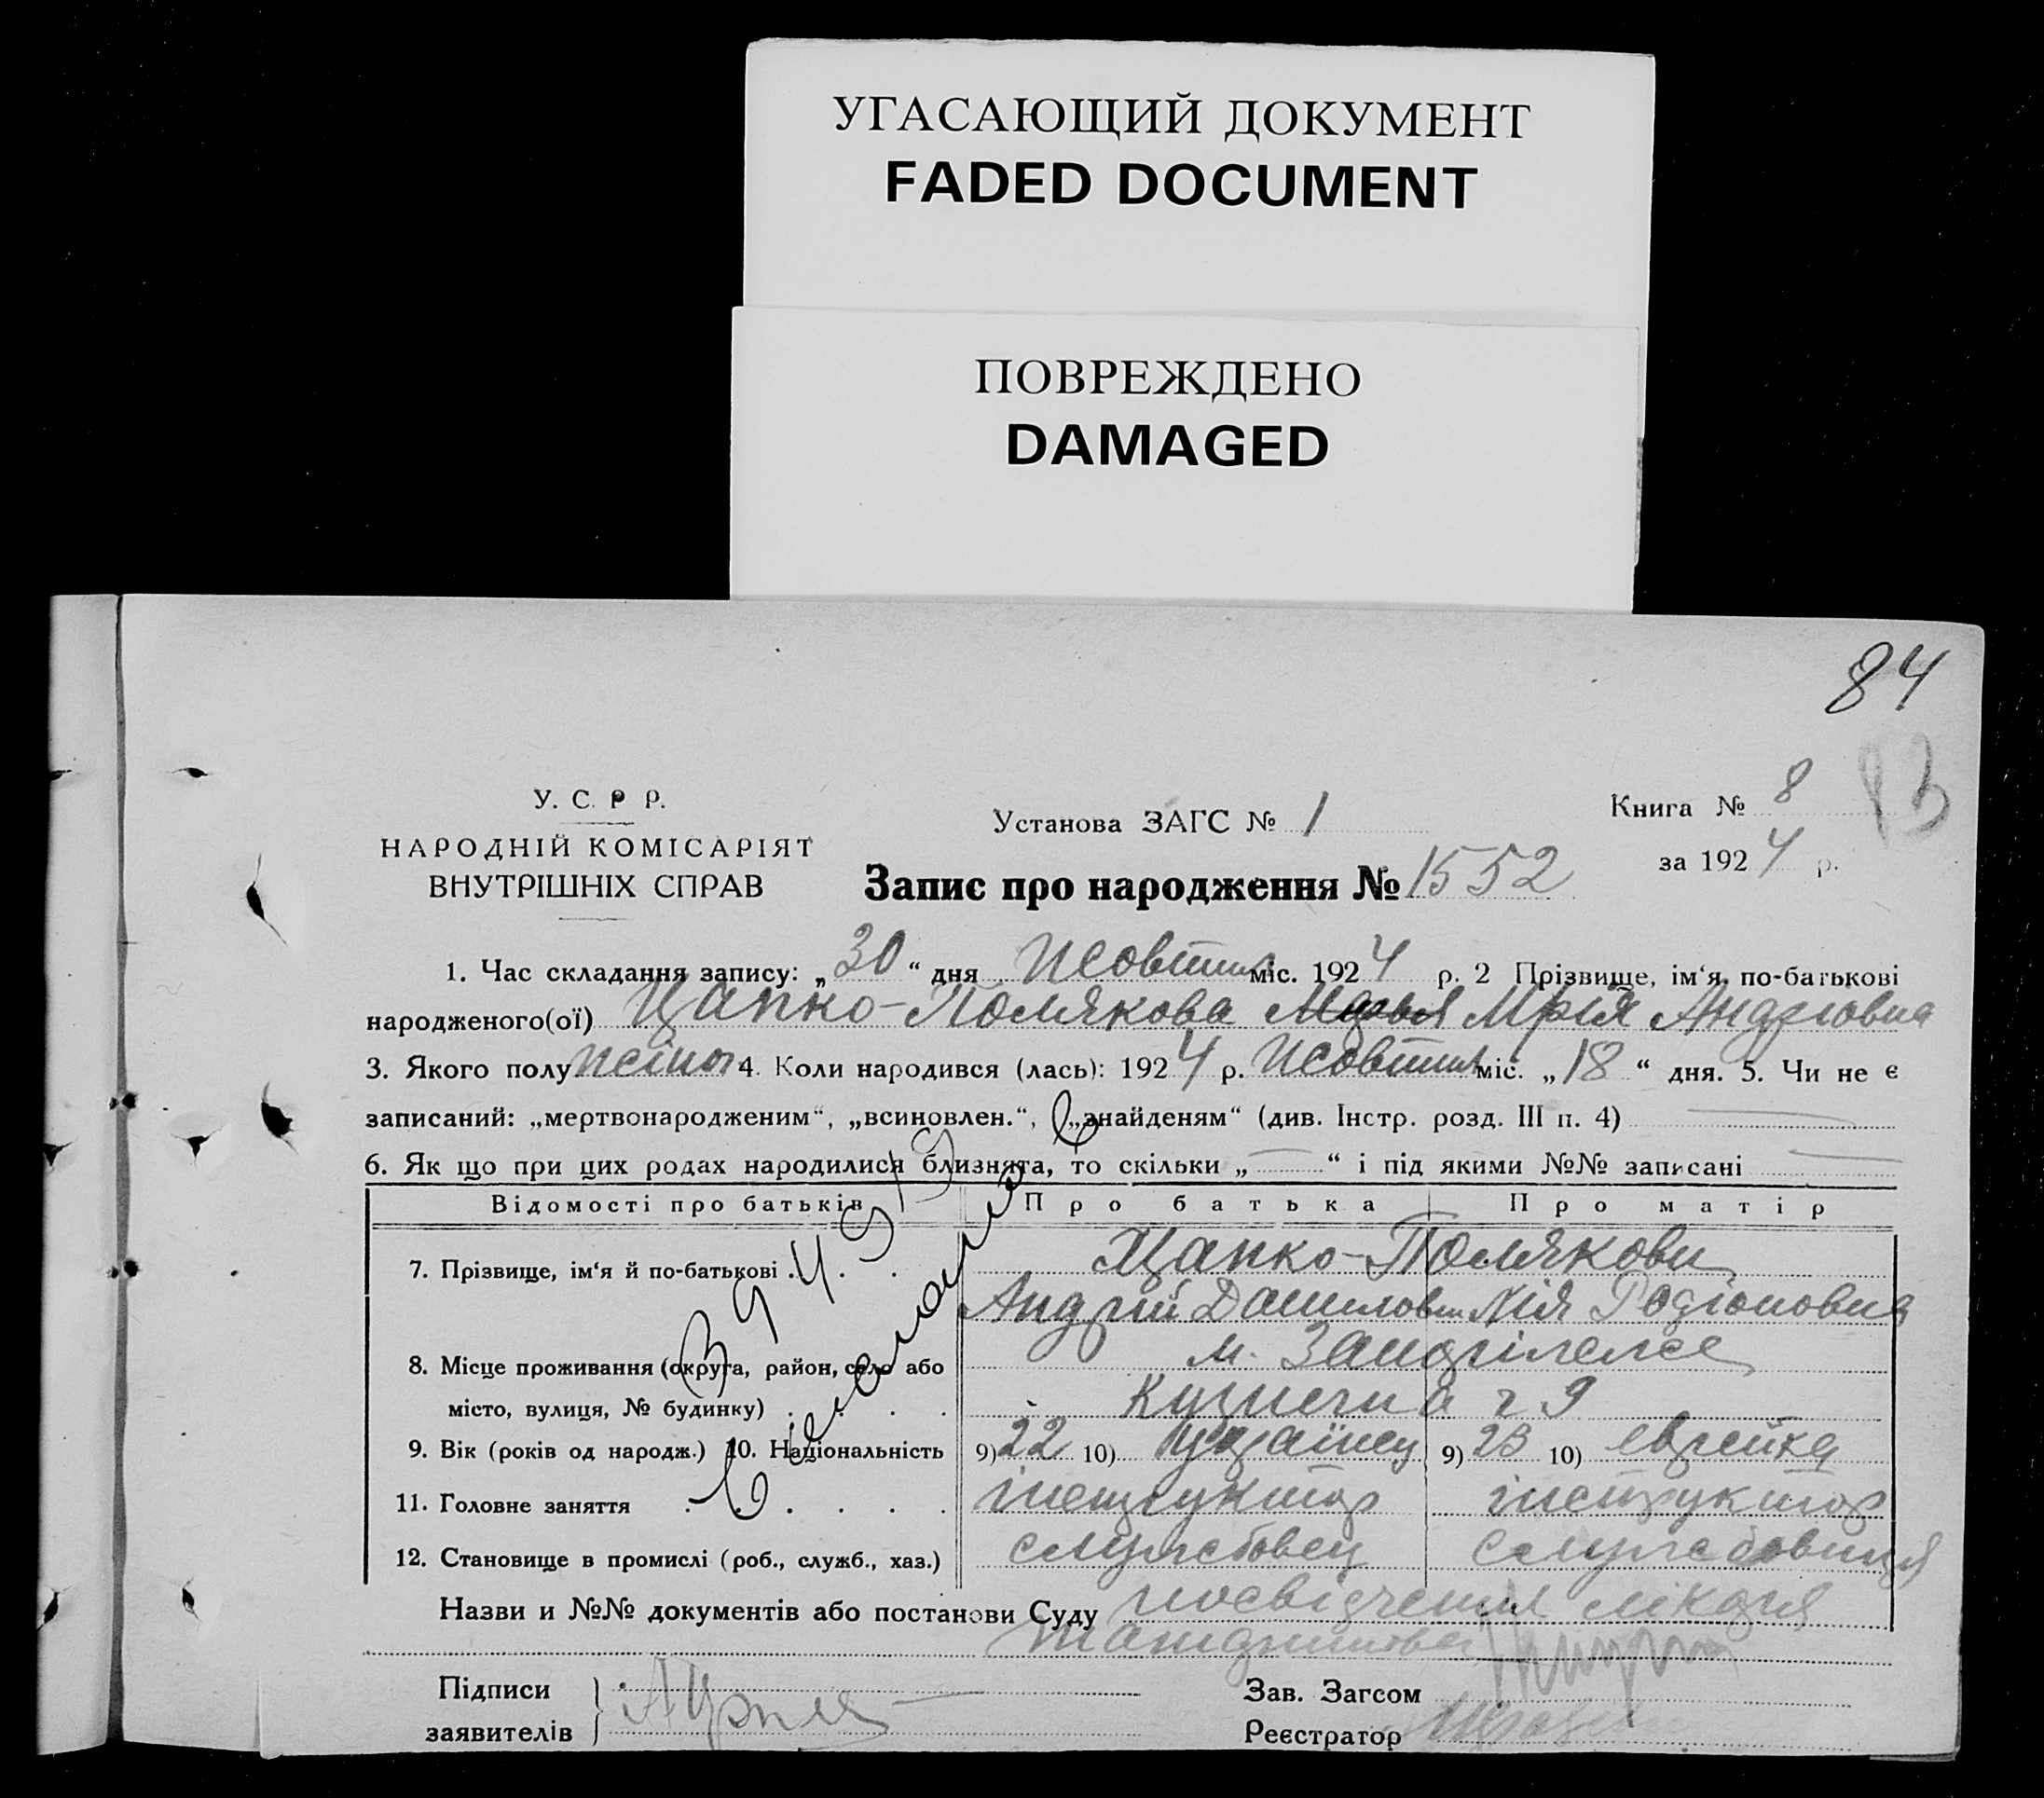 УГАСАЮЩИЙ ДОКУМЕНТ
FADED DOCUMENT
ПОВРЕЖДЕНО
DAMAGED
84
У. С. Р Р.
НАРОДНІЙ КОМІСАРІЯТ
ВНУТРІШНІХ СПРАВ
Установа ЗАГС № 1
Книга № 8
за 1924 р.
Запис про народження № 1552
1. Час складання запису: „30“ дня Жовтня міс. 1924 р. 2 Прізвище, ім‘я, по-батькові
народженого(ої) Цапко-Полякова Мрія Андріовна
3. Якого полу жіноч 4. Коли народився (лась): 1924 р. Жовтня міс. „18“ дня. 5. Чи не є
записаний: „мертвонародженим“, „всиновлен.“, „знайденям“ (див. Інстр. розд. III п. 4)
6. Як що при цих родах народилися близнята, то скільки „ — “ і під якими №№ записані —
Відомості про батьків Про батька Про матір
7. Прізвище, ім‘я й по-батькові Цапко-Полякови
Андрій Данилович Лія Родіоновна
8. Місце проживання (округа, район, село або м.
місто, вулиця, № будинку) Кузнечна ч 9
9. Вік (років од народж.) 10. Національність 9) 22 10) українец 9) 23 10) еврейка
11. Головне заняття інструктор інструктор
12. Становище в промислі (роб., служб., хаз.) службовец службовиця
Назви и №№ документів або постанови Суду посвідчення лікаря
Підписи
заявителів
Зав. Загсом
Реєстратор